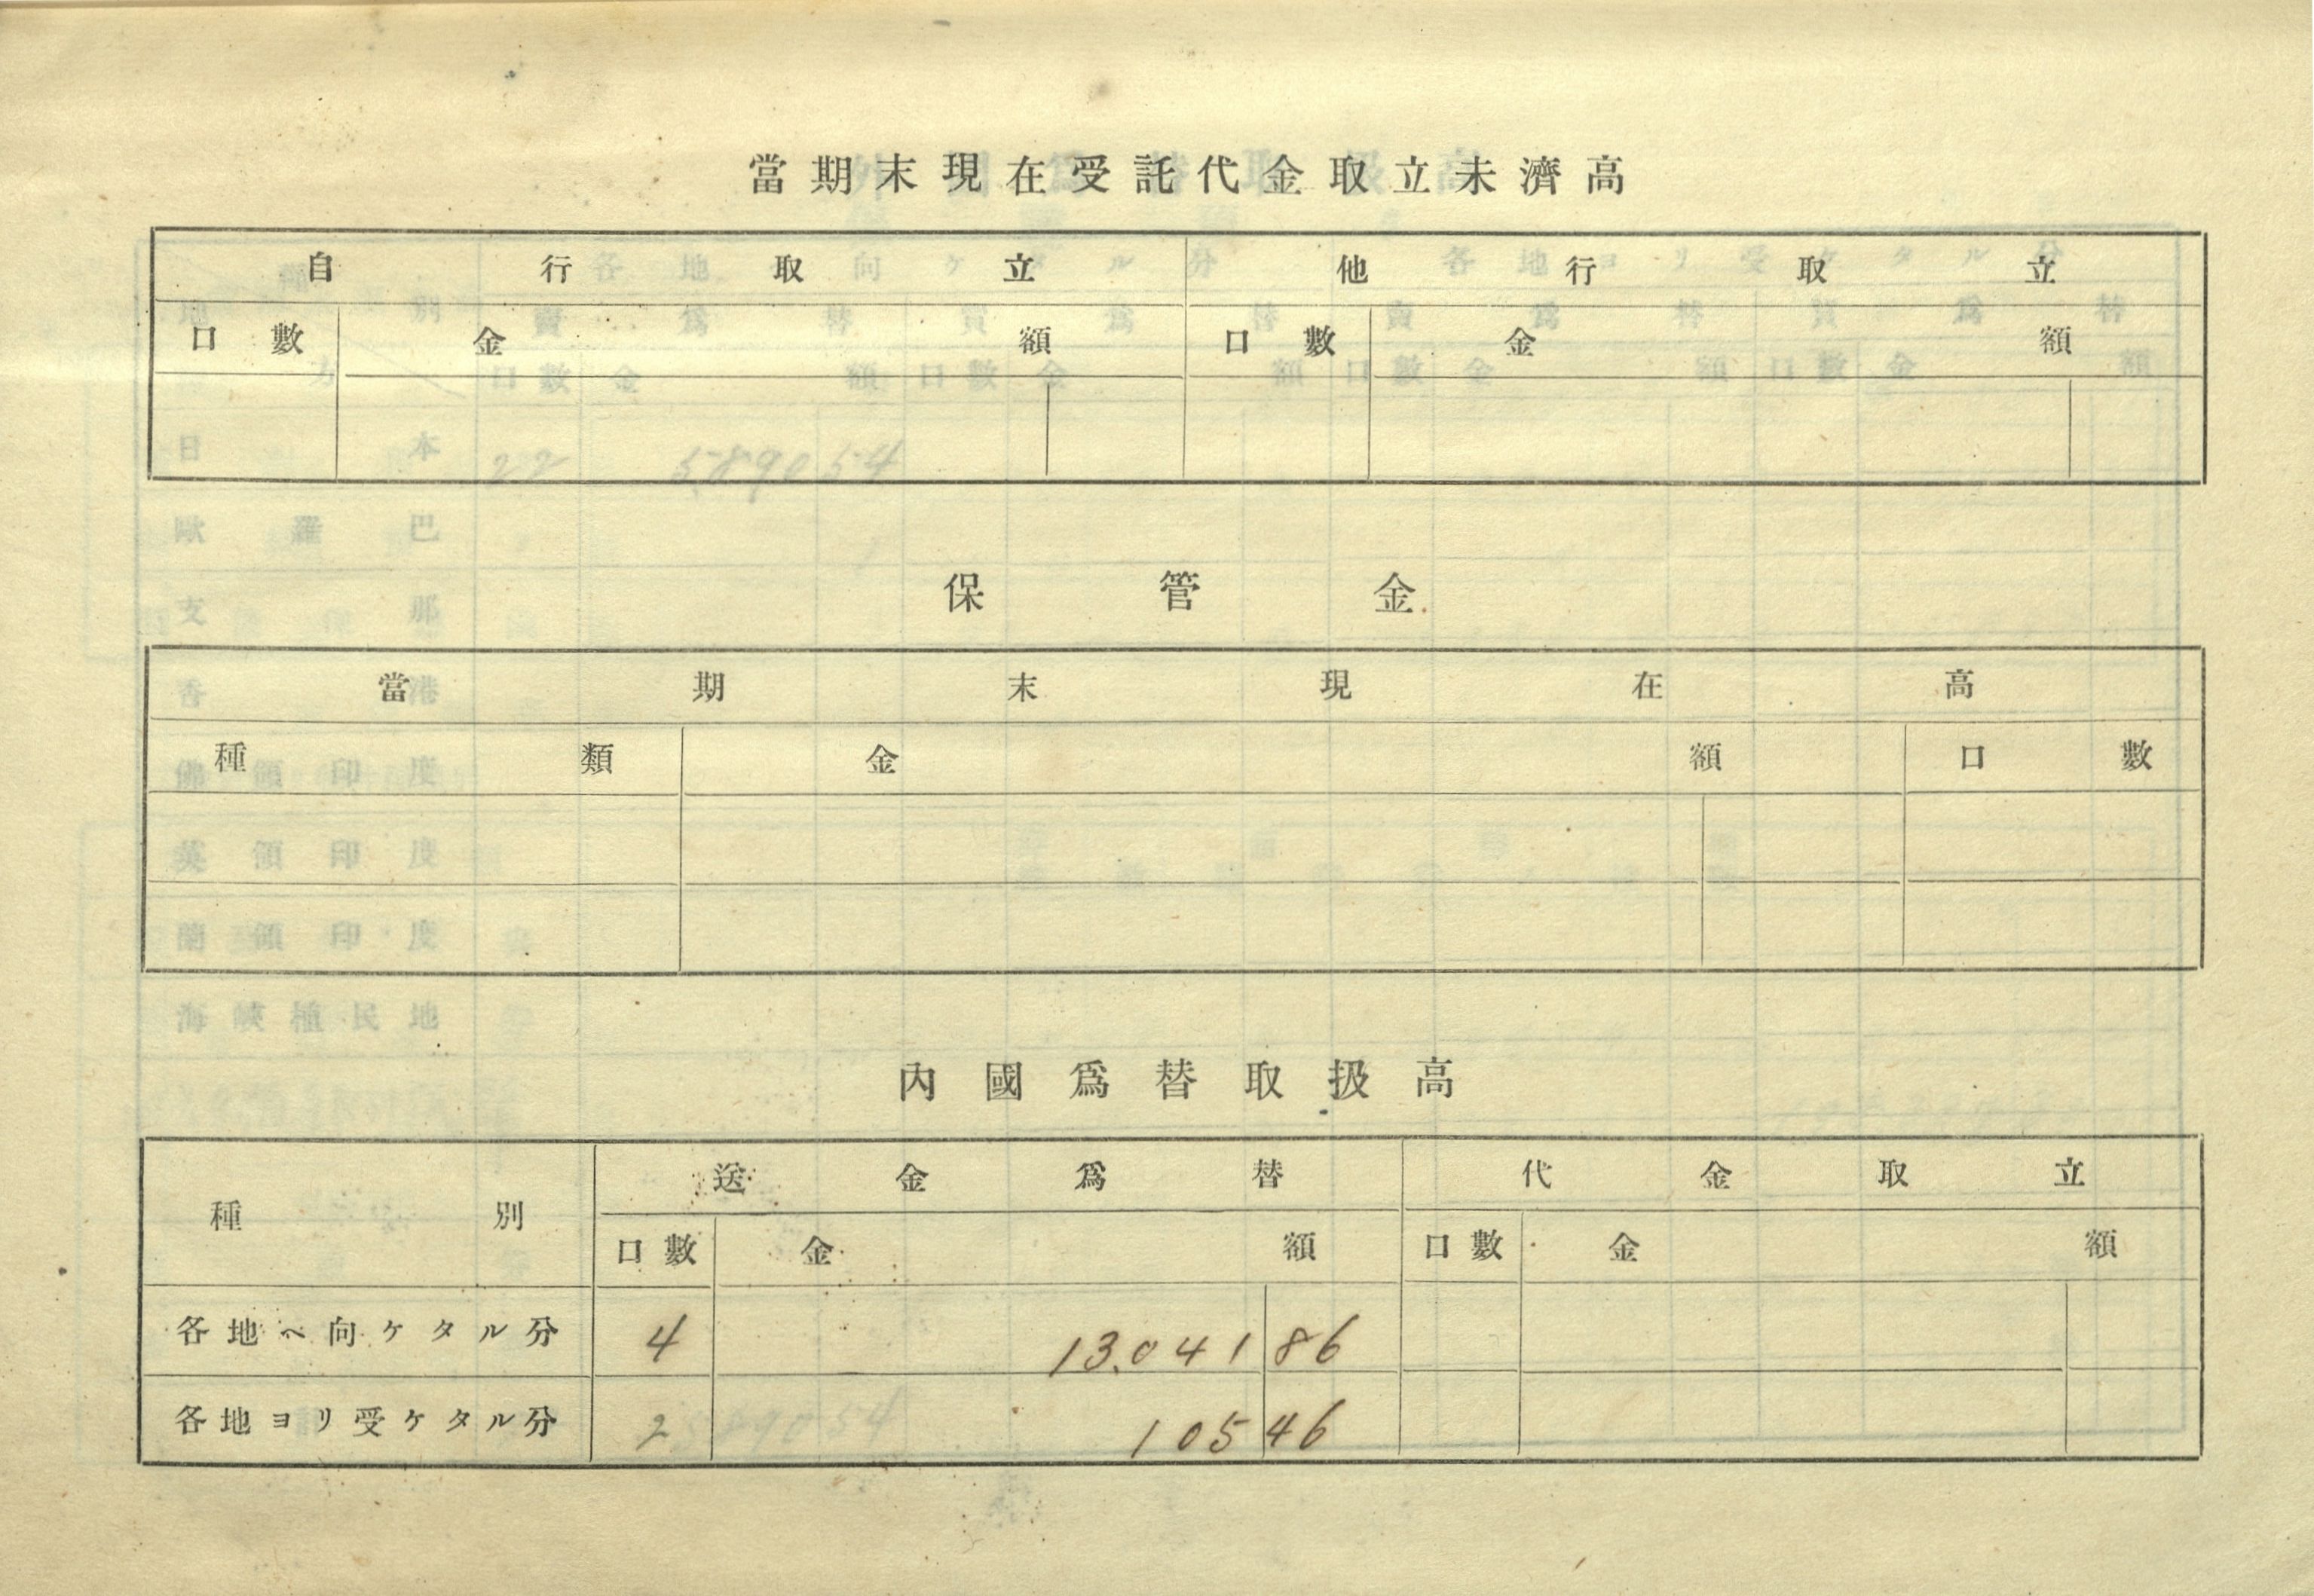 當期末現在受託代金取立未濟高
自行取立 他行取立
口數 金額 口數 金額
保管金
當期末現在高
種類 金額 口數
內國爲替取扱高
種別 送金爲替 代金取立
口數 金額 口數 金額
各地ヘ向ケタル分 4 13.041 86
各地ヨリ受ケタル分 2 105 46